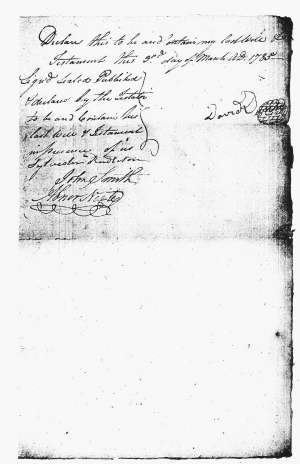 Declare this to be and Contain my last Will &
Testament this 3rd day of March AD. 1785
Signd Sealed Published
& declared by the Testator
to be and Contain his
David
last Will & Testament
in presence of us
Sylvester
John Smith